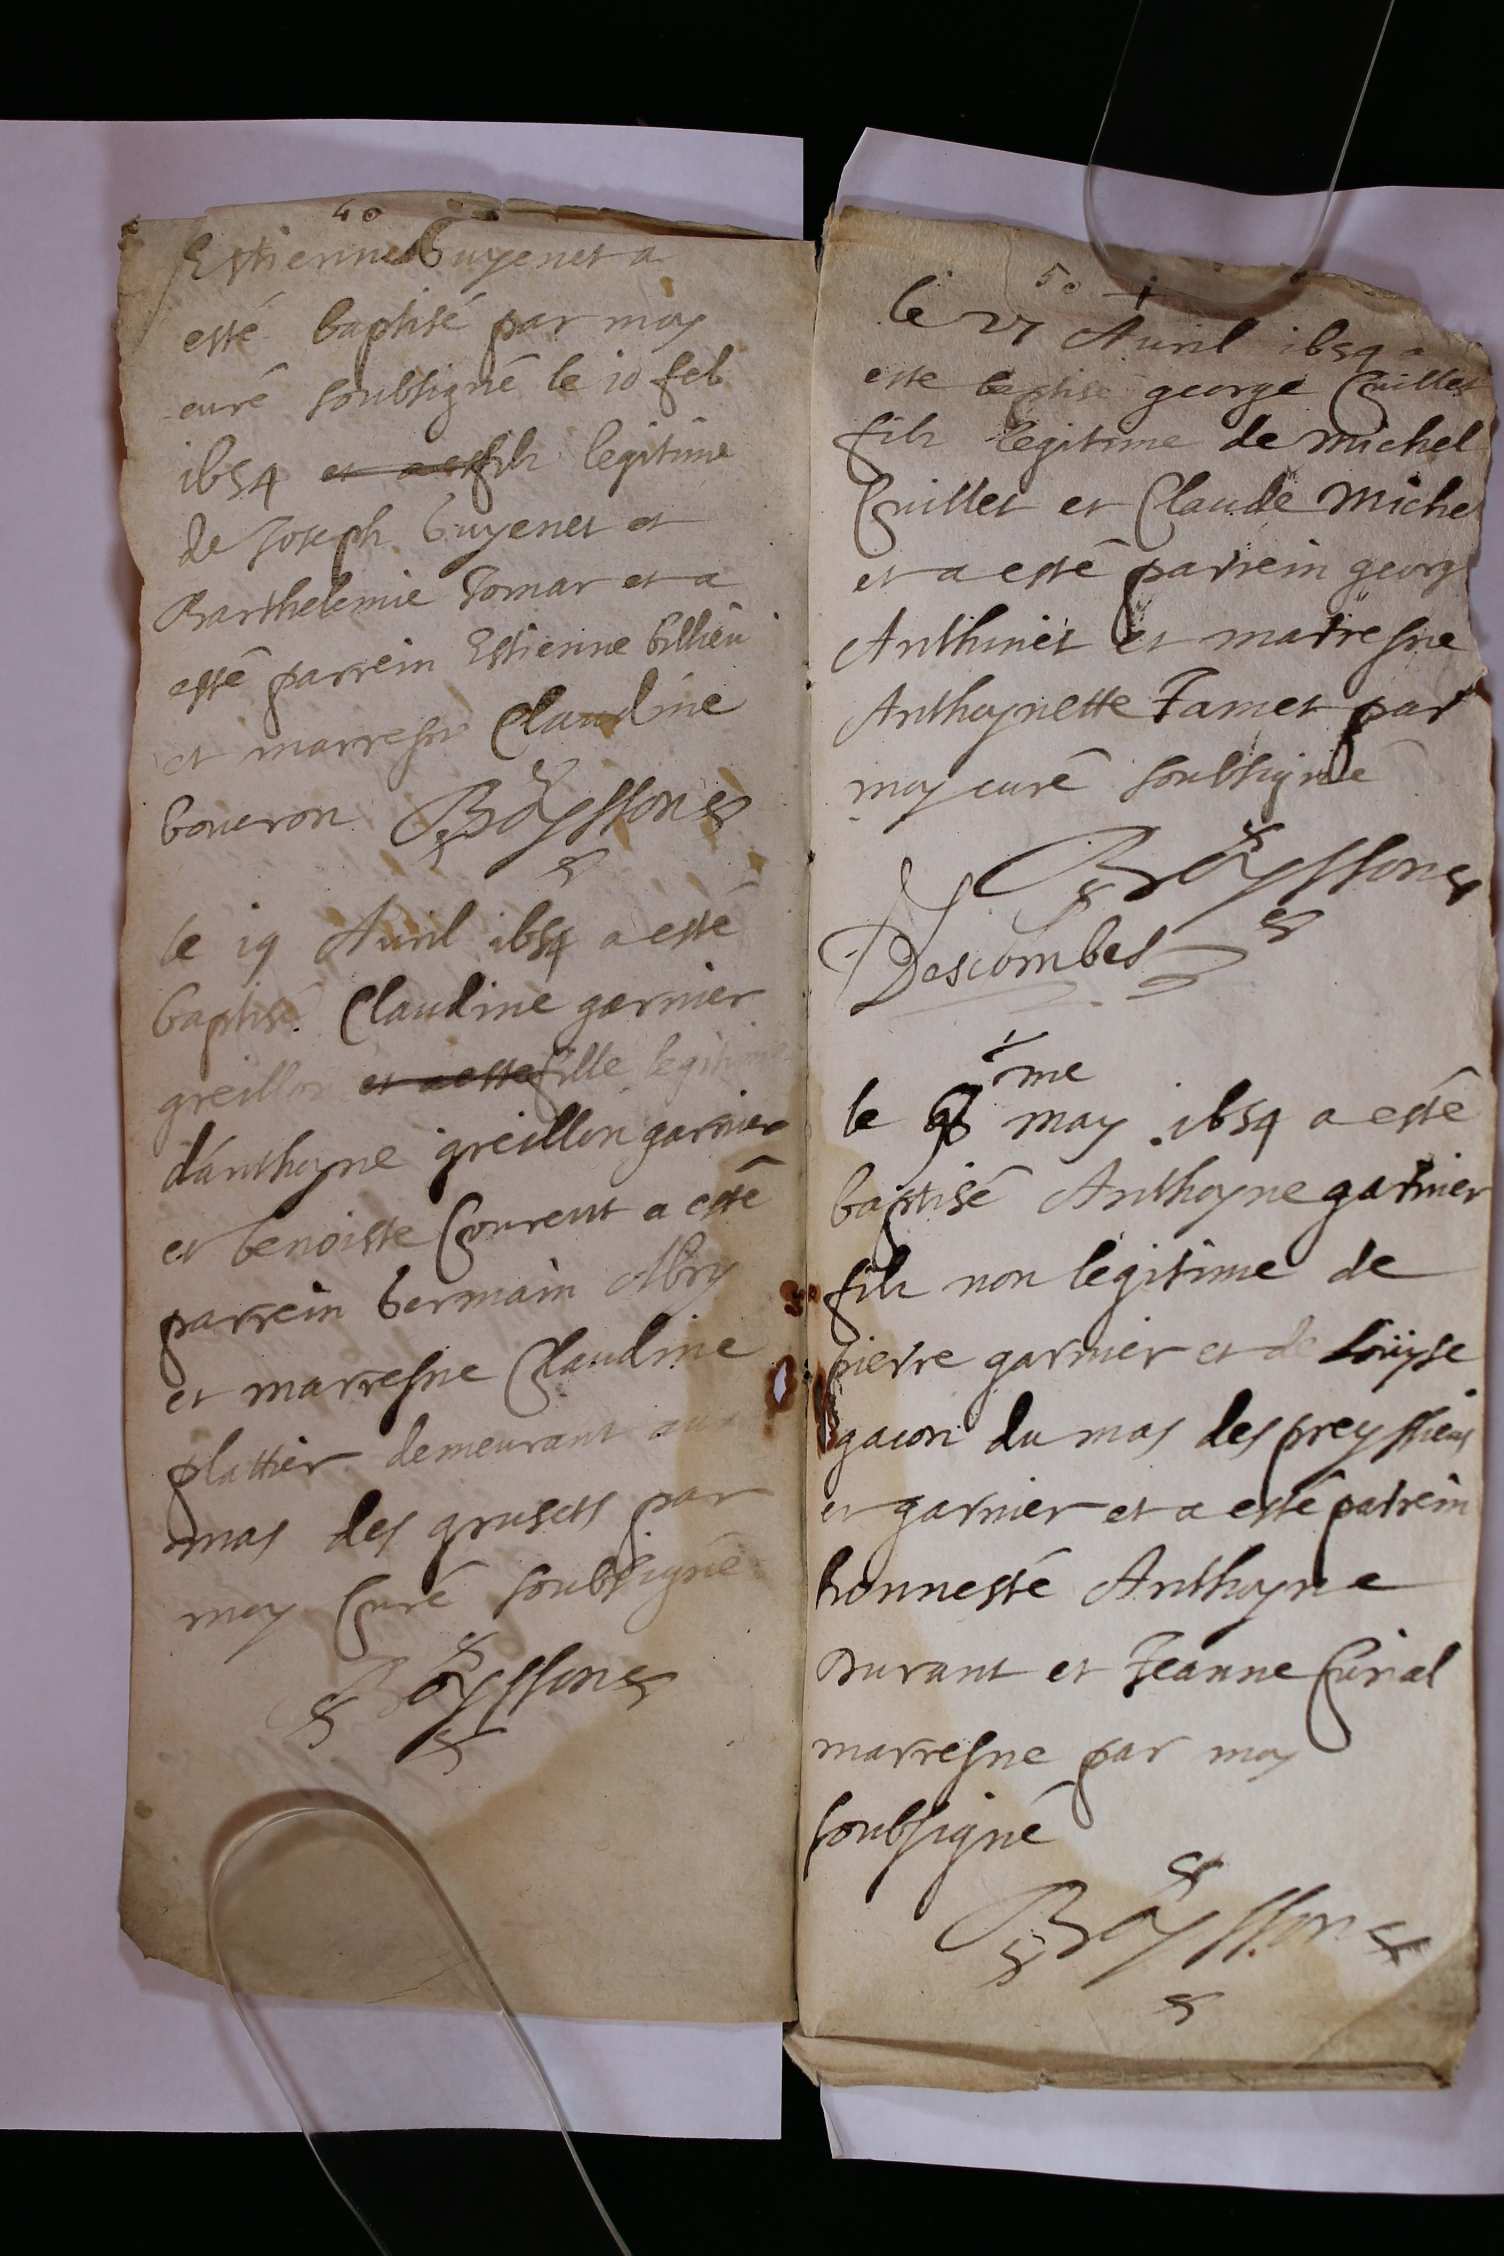 40
Estienne Guyenet a
esté baptisé par moy
curé soubsigné le 10 feb
1654 et a est fils legitime
de Joseph Guyenet et
Barthelemie Tomar et a
esté parrein Estienne
et marresne Claudine
boueron Boÿsson
le 19 Auril 1654 a esté
baptisé Claudine garnier
greillon et a esté fille legitime
d'anthoyne greillon garnier
et benoiste Courent a esté
parrein Germain Abry
et marresne Claudine
plattier demeurant au
mas des grusets par
moy Curé soubsigné
Boÿsson
50
le 27 Auril 1654 a
esté baptisé george Cuillet
fils legitime de michel
Cuillet et Claude Miche
et a esté parrein georg
Anthunet et marresne
Anthoynette Famet par
moy curé soubsigné
Boÿsson
Descombes
me
le may 1654 a esté
baptisé Anthoyne garnier
fils non legitime de
pierre garnier et de Loüyse
gacon du mas des preyssieus
et garnier et a esté parrein
honnesté Anthoyne
Durant et Jeanne Curial
marresne par moy
soubsigné
Boÿsson